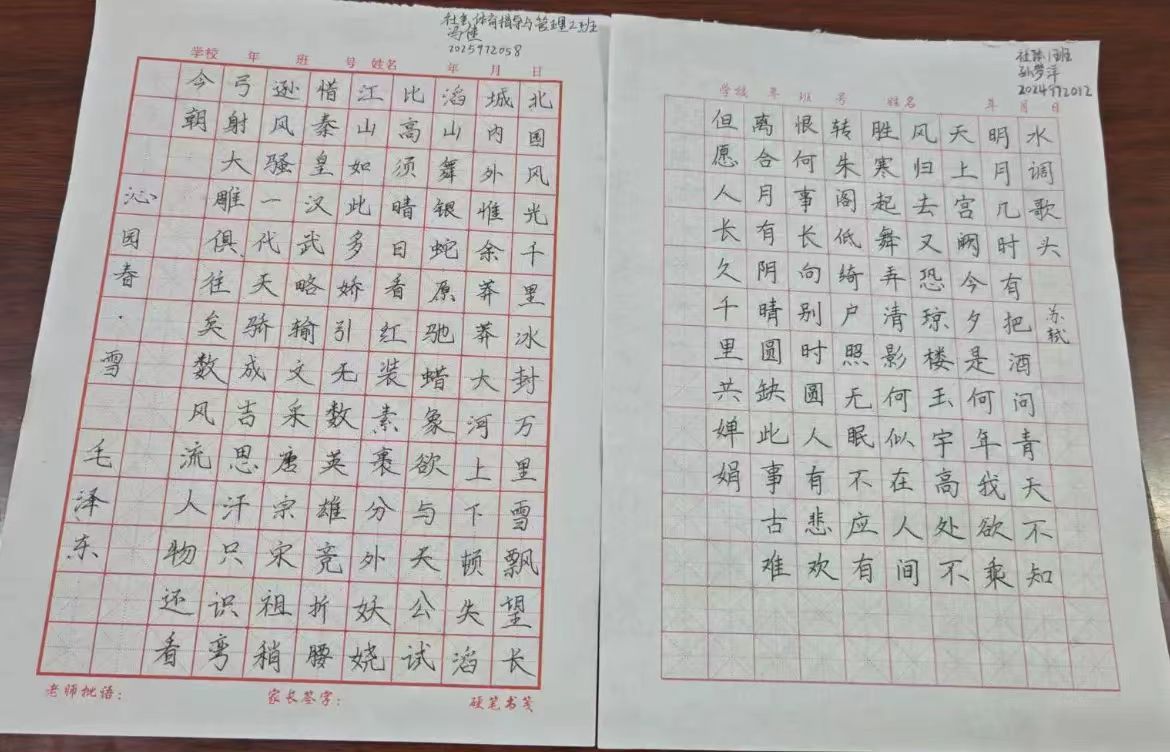 社会体育指导与管理2班
冯健
2025972058
学校 年 班 号 姓名 年 月 日
北国风光千里冰封万里雪飘望长
城内外惟余莽莽大河上下顿失滔
滔山舞银蛇原驰蜡象欲与天公试
比高须晴日看红装素裹分外妖娆
江山如此多娇引无数英雄竞折腰
惜秦皇汉武略输文采唐宗宋祖稍
逊风骚一代天骄成吉思汗只识弯
弓射大雕俱往矣数风流人物还看
今朝
沁园春·雪 毛泽东
老师批语： 家长签字： 硬笔书笺
孙梦洋
2024972012
学校 年 班 号 姓名 年 月 日
水调歌头 苏轼
明月几时有把酒问青天不知
天上宫阙今夕是何年我欲乘
风归去又恐琼楼玉宇高处不
胜寒起舞弄清影何似在人间
转朱阁低绮户照无眠不应有
恨何事长向别时圆人有悲欢
离合月有阴晴圆缺此事古难
但愿人长久千里共婵娟